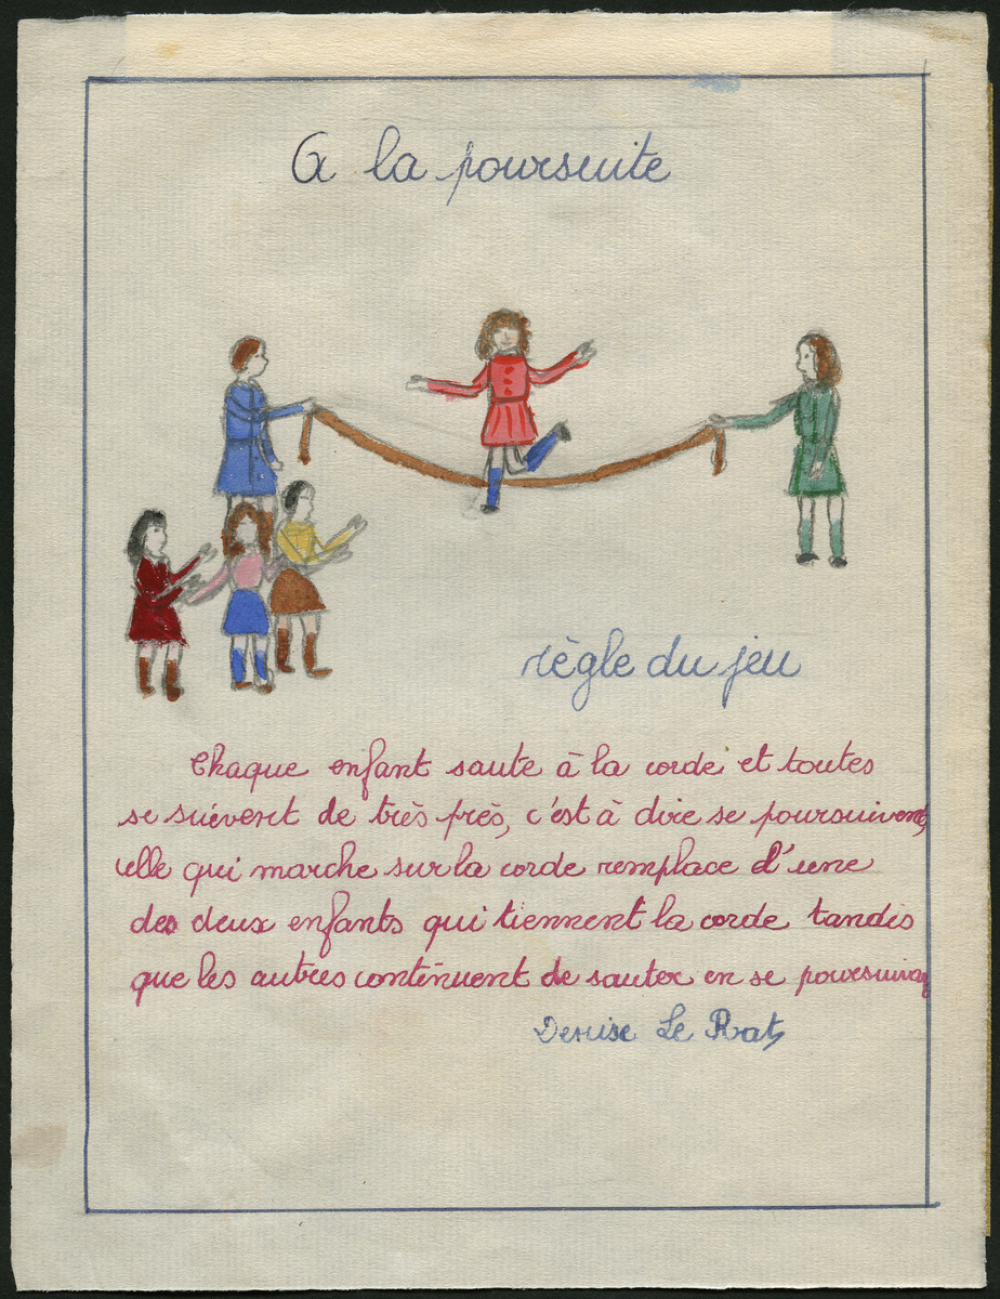 A la poursuite
règle du jeu
Chaque enfant saute à la corde et toutes
se suivent de très près, c'est à dire se poursuivent,
celle qui marche sur la corde remplace d'une
des deux enfants qui tiennent la corde tandis
que les autres continuent de sauter en se
Denise Le Rat